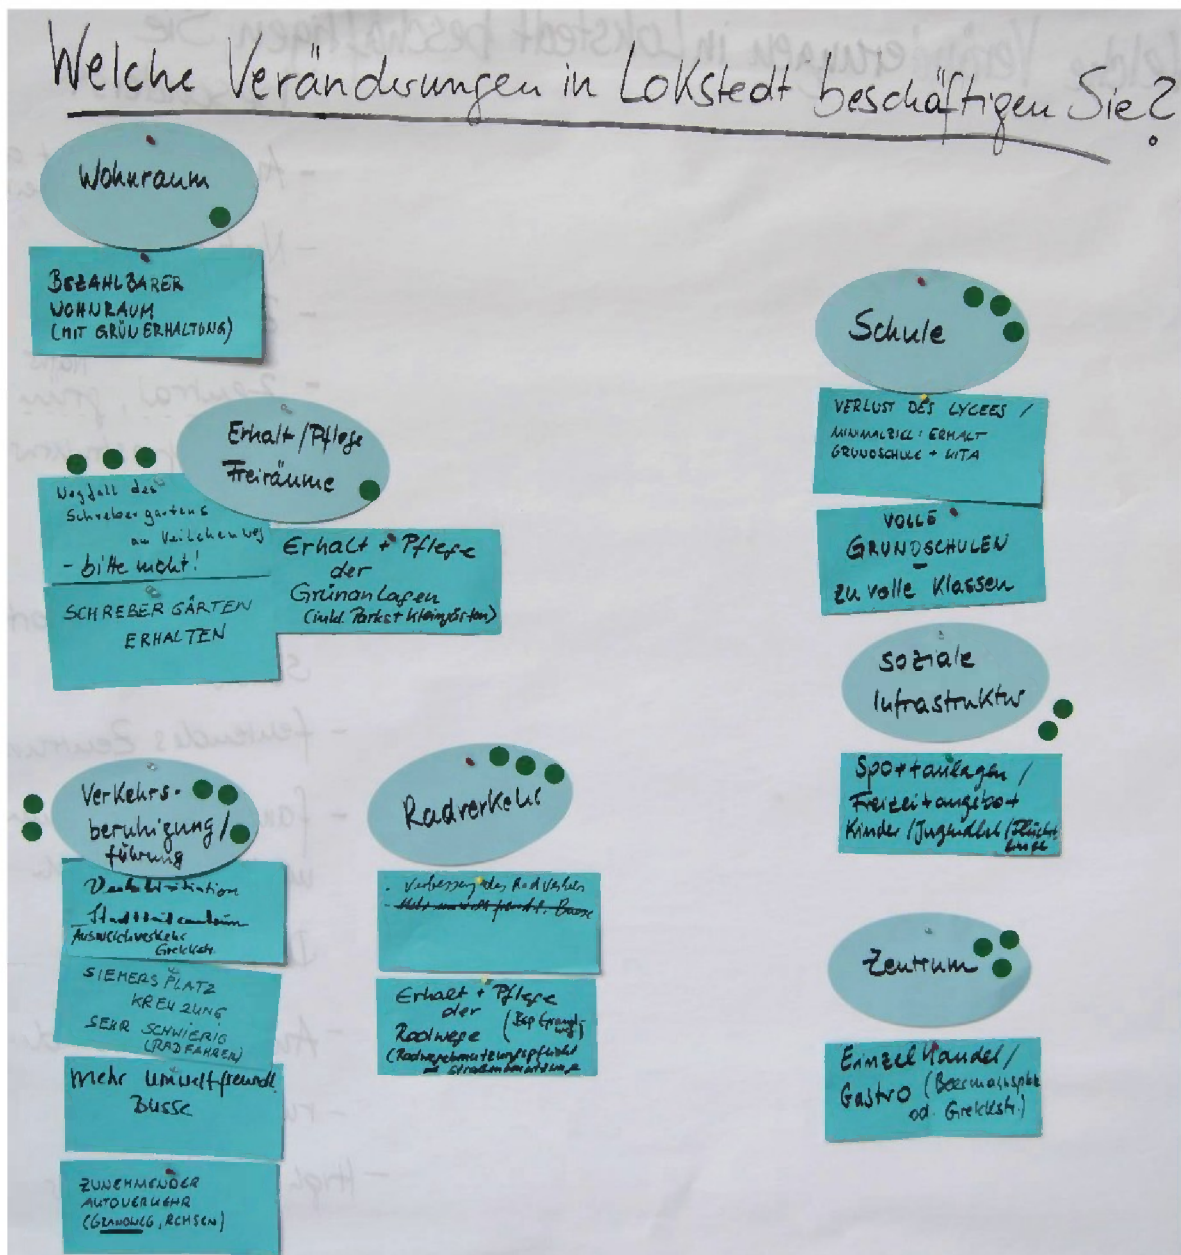 Welche Veränderungen in Lokstedt beschäftigen Sie?
Wohnraum
BEZAHLBARER
WOHNRAUM
(MIT GRÜNERHALTUNG)
Erhalt/Pflege
Freiräume
Wegfall des
Schrebergartens
am Veilchenweg
- bitte nicht!
SCHREBERGÄRTEN
ERHALTEN
Erhalt + Pflege
der
Grünanlagen
(inkl. Parks + Kleingärten)
Verkehrs-
beruhigung/
führung
Ausweichverkehr
Grelckstr.
SIEMERSPLATZ
KREUZUNG
SEHR SCHWIERIG
(RADFAHREN)
Mehr umweltfreundl.
Busse
ZUNEHMENDER
AUTOVERKEHR
(GRANDWEG, REHSEN)
Radverkehr
- Verbesserung des Radverkehrs
Erhalt + Pflege
der
Radwege (Bsp Grandweg)
Schule
VERLUST DES LYCEES /
MINIMALZIEL: ERHALT
GRUNDSCHULE + KITA
VOLLE
GRUNDSCHULEN
zu volle Klassen
soziale
Infrastruktur
Sportanlagen /
Freizeitangebot
Kinder / Jugendliche / Flüchtlinge
Zentrum
Einzelhandel /
Gastro (Beermannsplatz
od. Grelckstr.)